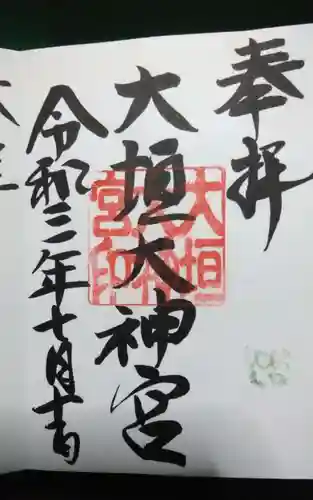 奉拝
大垣大神宮
大垣大神宮印
令和二年七月吉日